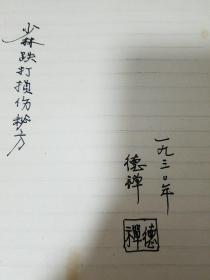 少林跌打损伤秘方
一九三〇年
德禅
德禪